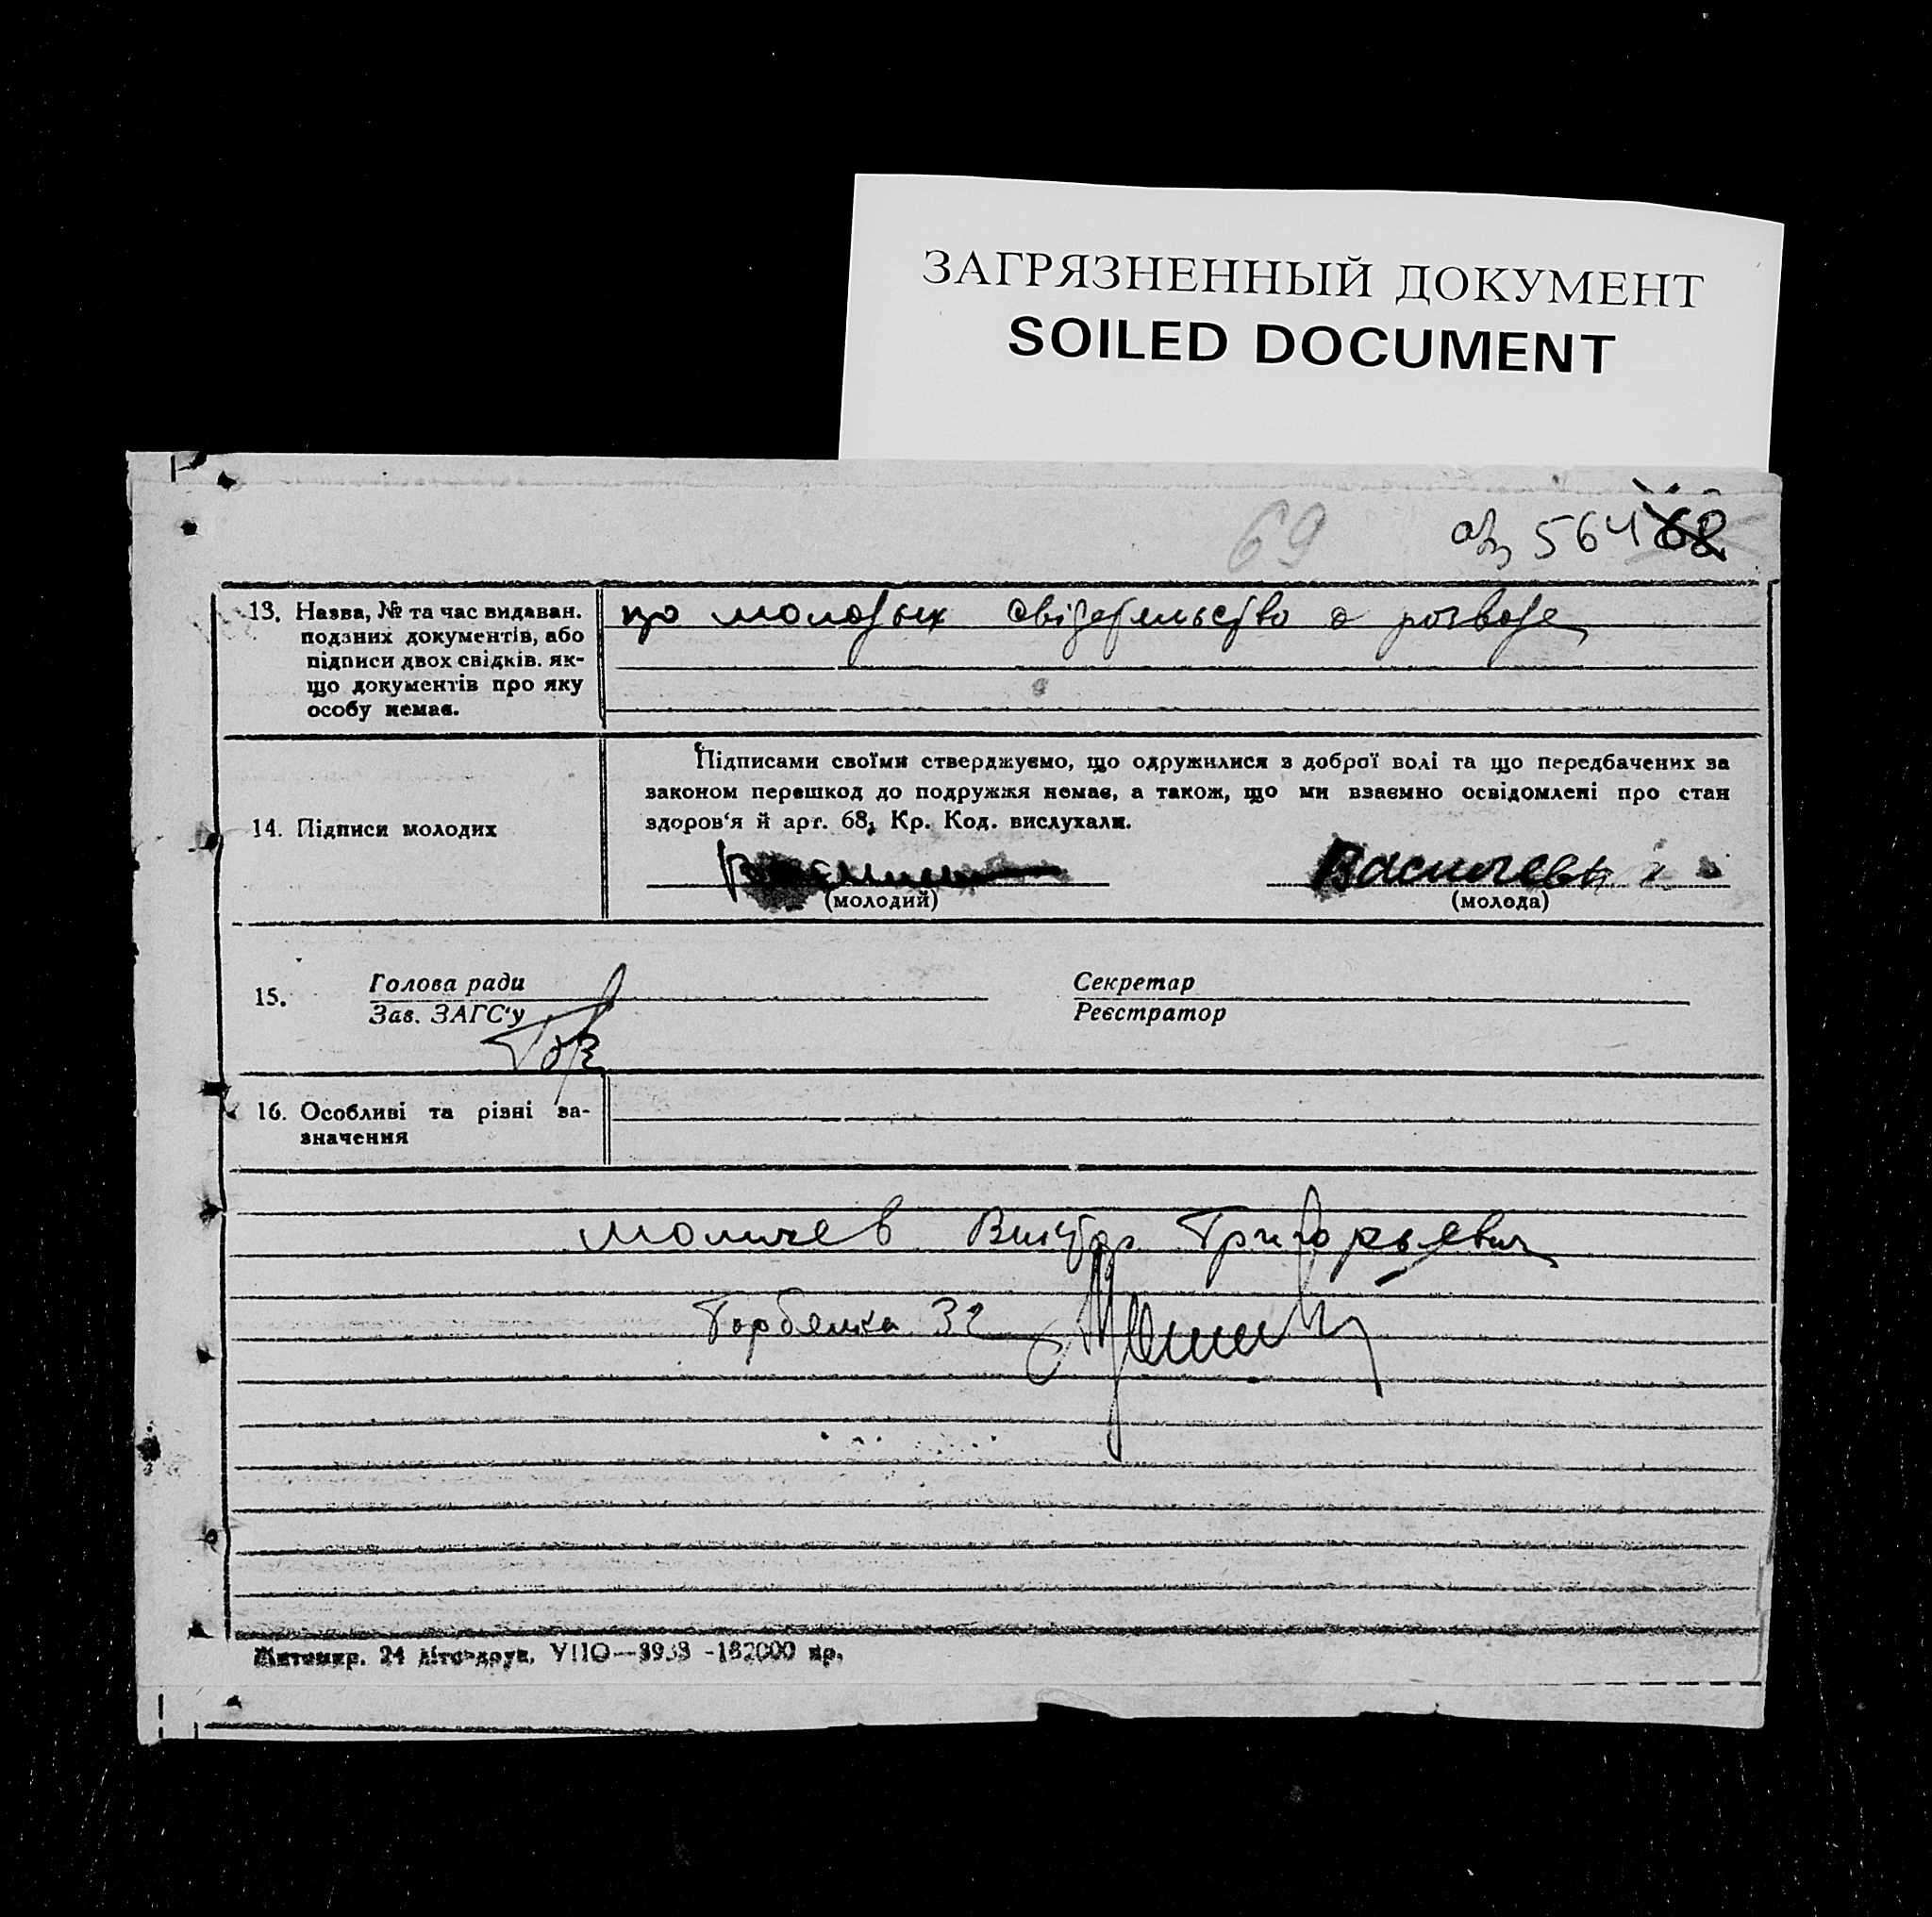 ЗАГРЯЗНЕННЫЙ ДОКУМЕНТ
SOILED DOCUMENT
69
564 68
13. Назва, № та час видаван.
поданих документів, або
підписи двох свідків. як-
що документів про яку
особу немає.
що молодых свідетельство о розводе
14. Підписи молодих
Підписами своїми стверджуємо, що одружилися з доброї волі та що передбачених за
законом перешкод до подружжя немає, а також, що ми взаємно освідомлені про стан
здоров'я й арт. 68, Кр. Код. вислухали.
(молодий)
(молода)
15.
Голова ради
Зав. ЗАГС'у
Секретар
Реєстратор
16. Особливі та різні за-
значення
Виктор Григорьевич
32
Житомир. 24 літо-друк. УПО—3933 -182000 пр.